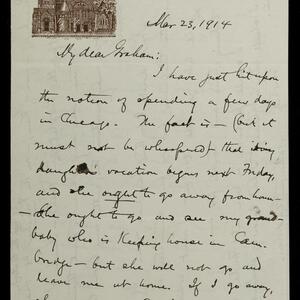 Mar 23, 1914
My dear Graham:
I have just hit upon
the notion of spending a few days
in Chicago. The fact is — (but it
must not be whispered) that my
daughter's vacation begins next Friday,
and she ought to go away from home —
She ought to go and see my grand-
baby who is keeping house in Cam-
bridge — but she will not go and
leave me at home. If I go away,